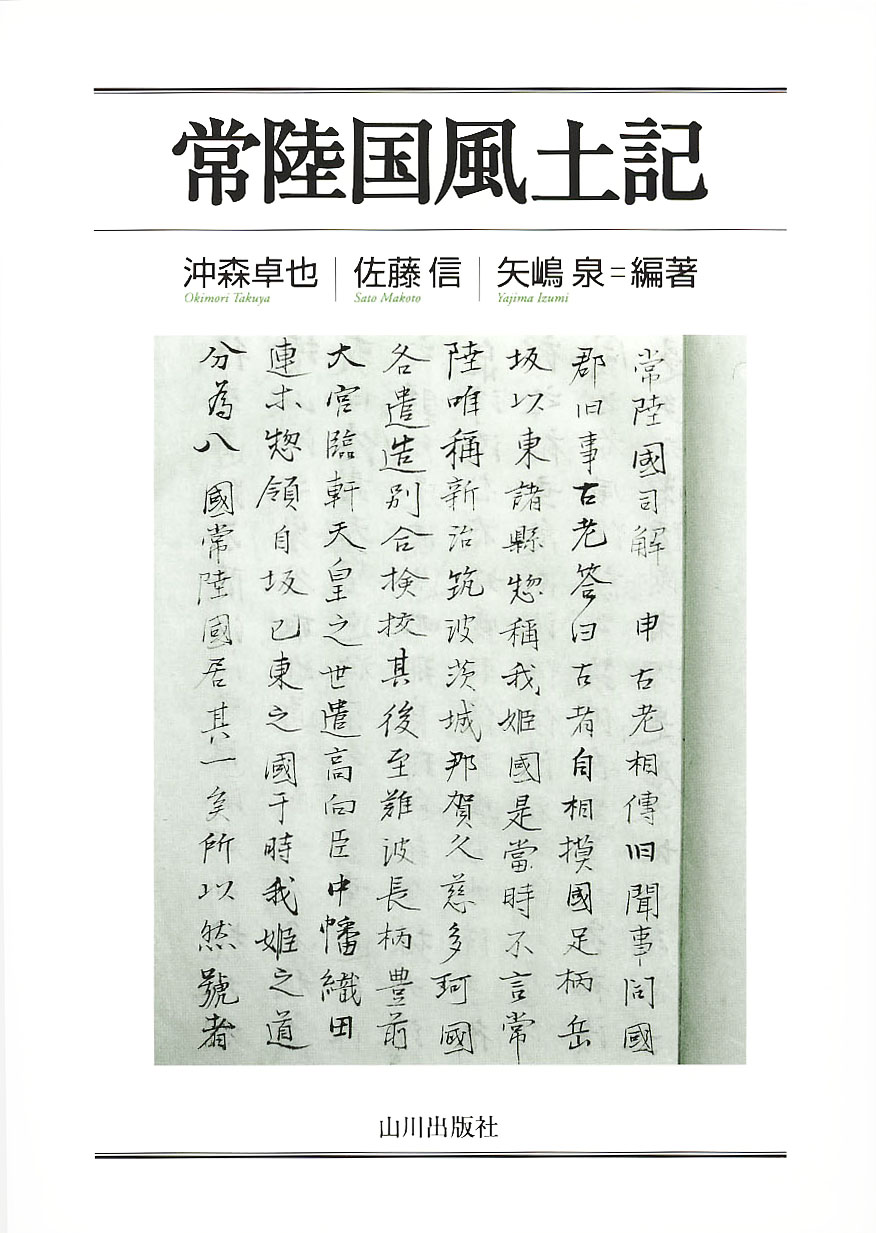 常陸国風土記
沖森卓也 佐藤 信 矢嶋 泉=編著
Okimori Takuya Sato Makoto Yajima Izumi
常陸國司解 申古老相傳旧聞事問國
郡旧事古老答曰古者自相摸國足柄岳
坂以東諸縣惣稱我姫國是當時不言常
陸唯稱新治筑波茨城那賀久慈多珂國
各遣造別令検挍其後至難波長柄豊前
大宮臨軒天皇之世遣高向臣中幡織田
連木惣領自坂已東之國于時我姫之道
分為八國常陸國居其一矣所以然號者
山川出版社